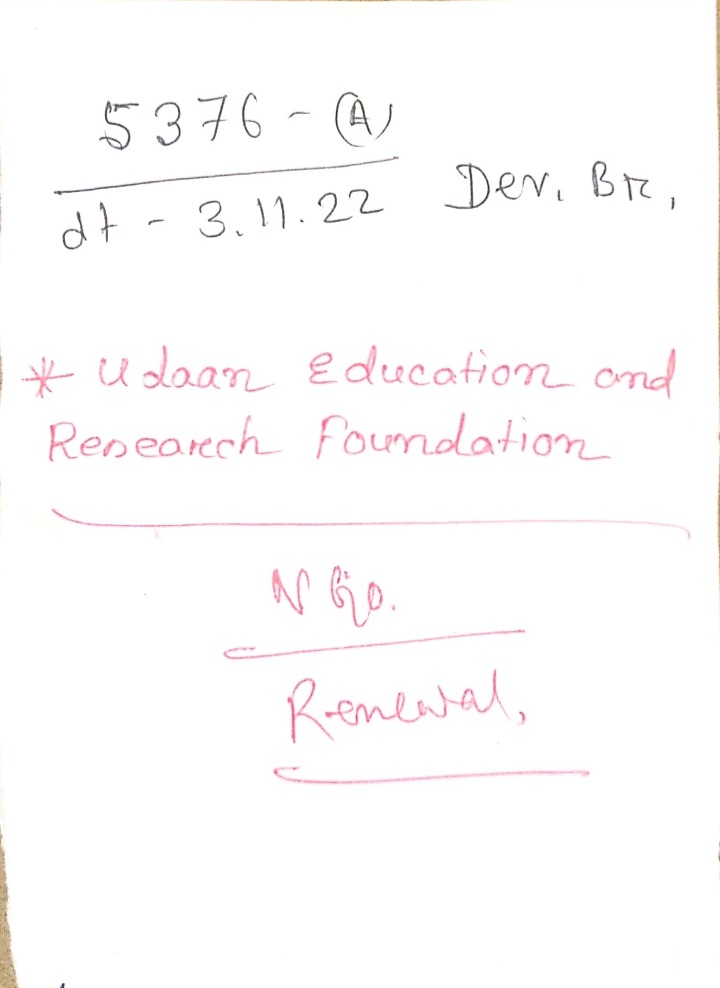 5376-(A)
dt - 3.11.22 Dev. Br,
* Udaan Education and
Research Foundation
NGO.
Renewal,